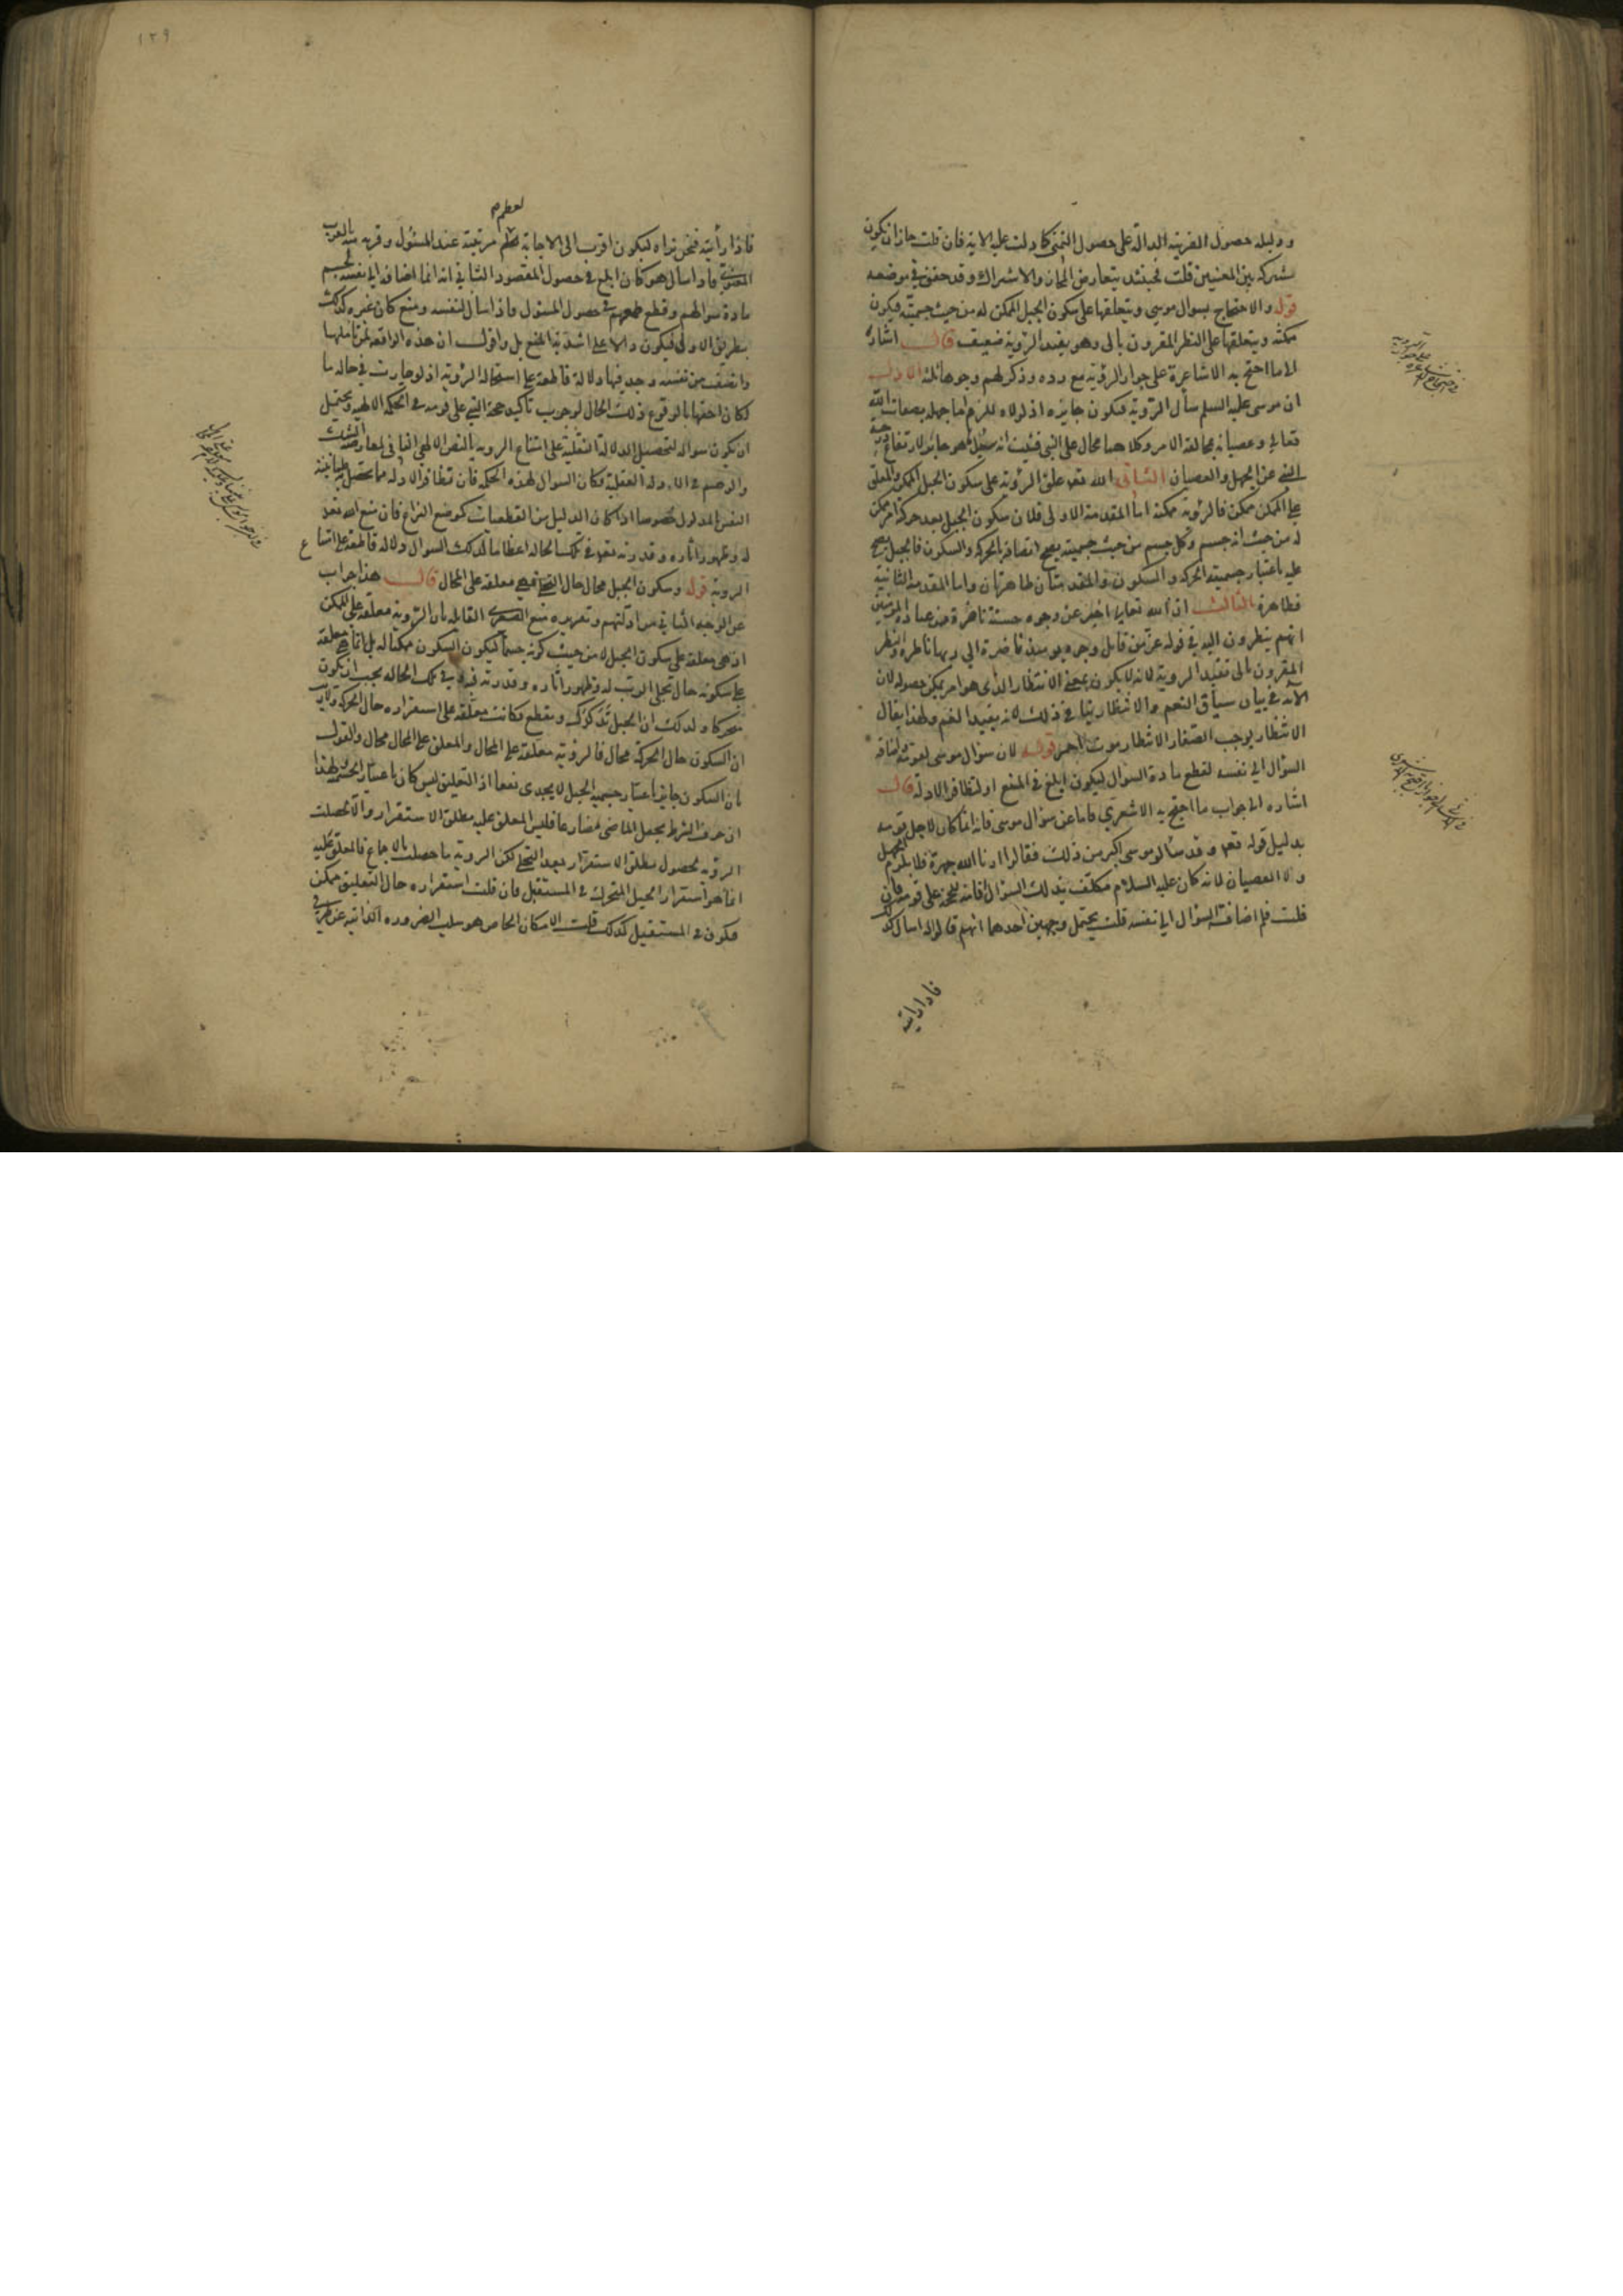 ودليله حصول القرينة الدالة على حصول التمنى كما دلت عليه الاية فان قلت جاز ان يكون
مشتركه بين المعنيين قلت فحينئذ يتعارض المجاز والاشتراك وقد حقق في موضعه
قوله والاحتجاج بسوال موسى ويتعلقها على سكون الجبل الممكن له من حيث جسميته فيكون
ممكنة ويتعلقها على النظر المقرون بالى وهو يفيد الرؤية ضعيف قال اشارة
الى ما احتج به الاشاعرة على جواز الرؤية مع رده وذكر لهم وجوها ثلثة الاول
ان موسى عليه السلم سأل الرؤية فيكون جايزه اذ لولاه للزم اما جهله بصفات الله
تعالى وعصيانه بمخالفة الامر وكلاهما محال على النبي فثبت انه سئل ما هو جايز لارتفاع
النبي عن الجهل والعصيان الثانى الله تعه علق الرؤية على سكون الجبل الممكن والمعلق
على الممكن ممكن فالرؤية ممكنة اما المقدمة الاولى فلان سكون الجبل بعد حركته امر ممكن
له من حيث انه جسم وكل جسم من حيث جسميته يصح اتصافه بالحركة والسكون فالجبل يصح
عليه باعتبار جسميته الحركه والسكون والمقدمتان ظاهرتان واما المقدمة الثانية
فظاهرة الثالث ان الله تعالى اخبر عن وجوه حسنة ناضرة من عباده المؤمنين
انهم ينظرون اليه في قوله عز من قايل وجوه يومئذ ناضرة الى ربها ناظرة والنظر
المقرون بالى تفيد الرؤية لانه لا يكون بمعنى الانتظار الذى هو امر يمكن حصوله لان
الآية في بيان سياق النعم والانتظار ينافي ذلك لانه يفيد الغم ولهذا يقال
الانتظار يوجب الصفار الانتظار موت احمر قوله لان سؤال موسى لقومه واضافة
السؤال الى نفسه لقطع مادة السؤال ليكون ابلغ فى المنع او لتظافر الادلة قال
اشاره الى جواب ما احتج به الاشعري فاما عن سؤال موسى فانه انما كان لاجل قومه
بدليل قوله تعه وقد سألوا موسى اكبر من ذلك فقالوا ارنا الله جهرة فلا يلزم الجهل
ولا العصيان لانه كان عليه السلام مكلف بذلك السؤال لاقامة الحجة على قومه فان
قلت فلم اضافة السؤال الى نفسه قلت يحتمل وجهين احدهما انهم قالوا له اسال لك
فاذا رأيته
١٣٩
لعظم
فاذا رأيته فنحن نراه ليكون اقرب الى الاجابة لعظم مرتبته عند المسئول وقربه منه
فاذا سال هو كان ابلغ فى حصول المقصود الثاني انه انما اضافه الى نفسه لحسم
مادة سوالهم وقطع طمعهم فى حصول المسئول فاذا سال لنفسه ومنع كان غيره كذلك
بطريق الاولى فيكون دالا على اشدية المنع بل واقول ان هذه الواقعة لمن تاملها
وانصف من نفسه وجد فيها دلالة قاطعة على استحالة الرؤية اذ لو جازت في حاله ما
لكان احقها بالوقوع ذلك الحال لوجوب تأكيد حجة النبي على قومه فى الحكمة الالهية ويحتمل
ان يكون سواله لتحصيل الدلالة النقلية على امتناع الرويه بالنص الالهي النافى لمعارضة الشك
والوهم فى الادلة العقلية فكان السوال لهذه الحكمة فان تظافر الادلة مما تحصل طمانينة
النفس المدلول خصوصا اذا كان الدليل من القطعيات كموضع النزاع فان منع الله تعه
له وظهور اثاره وقدرته تعه فى تلك الحاله اعظاما لذلك السوال دلاله قاطعة على امتناع
الروية قوله وسكون الجبل محال حال التجلي فهي معلقة على المحال قال هذا جواب
عن الوجه الثاني من ادلتهم وتقريره منع الصغرى القايلة بان الرؤية معلقة على الممكن
اذ هى معلقة على سكون الجبل لا من حيث كونه جسما ليكون السكون ممكنا له بل انما هي معلقة
على سكونه حال تجلى الرب له وظهور اثاره وقدرته فيه في تلك الحاله يجب ان يكون
متحركا ولذلك ان الجبل تدكدك وتقطع فكانت معلقة على استقراره حال الحركة ولاريب
ان السكون حال الحركة محال فالرؤية معلقة على المحال والمعلق على المحال محال والقول
بان السكون جايز باعتبار جسمية الجبل لا يجدى نفعا اذ التعليق ليس كان باعتبار الجسمية ولهذا
ان حرف الشرط يجعل الماضى مضارعا فليس المعلق عليه مطلق الاستقرار والا لحصلت
الرؤيه لحصول مطلق الاستقرار بعد التجلي لكن الرويه ما حصلت بالاجماع فالمعلق عليه
انما هو استقرار الجبل المتحرك فى المستقبل فان قلت استقراره حال التعليق ممكن
فيكون فى المستقبل كذلك قلت الامكان الخاص هو سلب الضرورة الذاتية عن طرفي